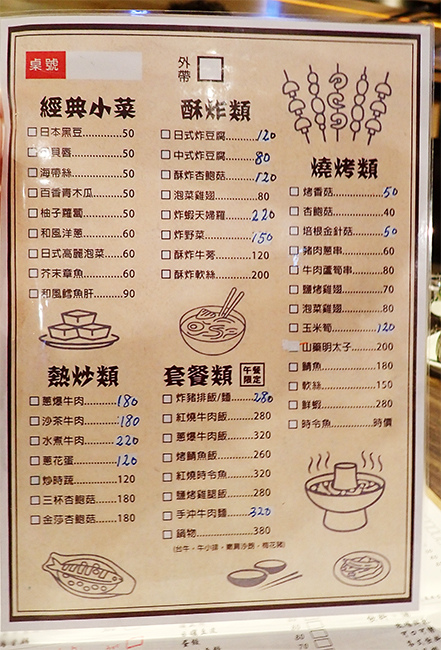 桌號
外帶
經典小菜
日本黑豆 50
貝唇 50
海帶絲 50
百香青木瓜 50
柚子蘿蔔 50
和風洋蔥 60
日式高麗泡菜 60
芥末章魚 60
和風鱈魚肝 90
酥炸類
日式炸豆腐 120
中式炸豆腐 80
酥炸杏鮑菇 120
泡菜雞翅 80
炸蝦天婦羅 220
炸野菜 150
酥炸牛蒡 120
酥炸軟絲 200
燒烤類
烤香菇 50
杏鮑菇 40
培根金針菇 50
豬肉蔥串 60
牛肉蘆筍串 80
鹽烤雞翅 70
泡菜雞翅 80
玉米筍 120
山藥明太子 200
鯖魚 180
軟絲 150
鮮蝦 280
時令魚 時價
熱炒類
蔥爆牛肉 180
沙茶牛肉 180
水煮牛肉 220
蔥花蛋 120
炒時蔬 120
三杯杏鮑菇 180
金莎杏鮑菇 180
套餐類 午餐限定
炸豬排飯/麵 280
紅燒牛肉飯 280
蔥爆牛肉飯 320
烤鯖魚飯 260
紅燒時令魚 320
鹽烤雞腿飯 280
手沖牛肉麵 320
鍋物 380
(台牛、牛小排、嫩肩沙朗、梅花豬)